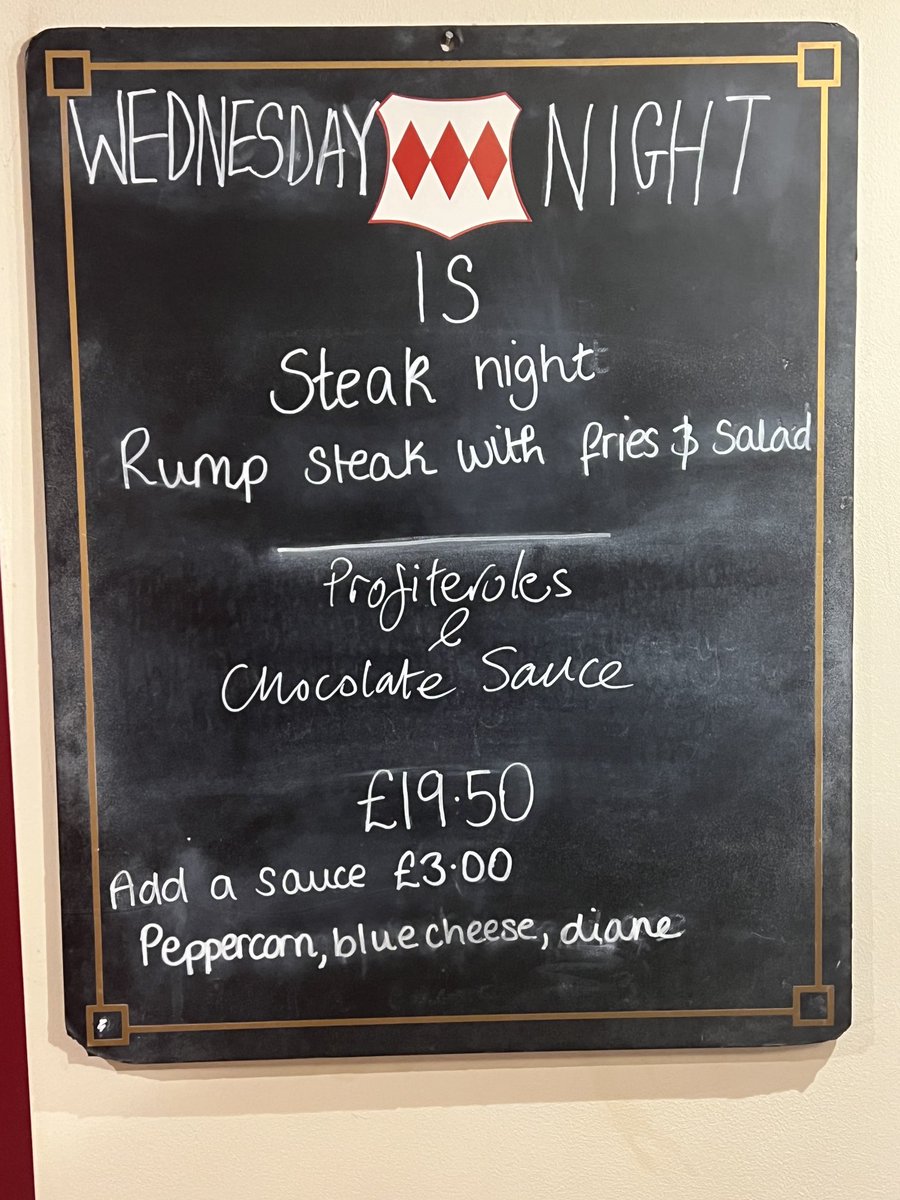 WEDNESDAY NIGHT
IS
Steak night
Rump steak with fries & salad
Profiteroles
&
Chocolate Sauce
£19.50
Add a sauce £3.00
Peppercorn, blue cheese, diane